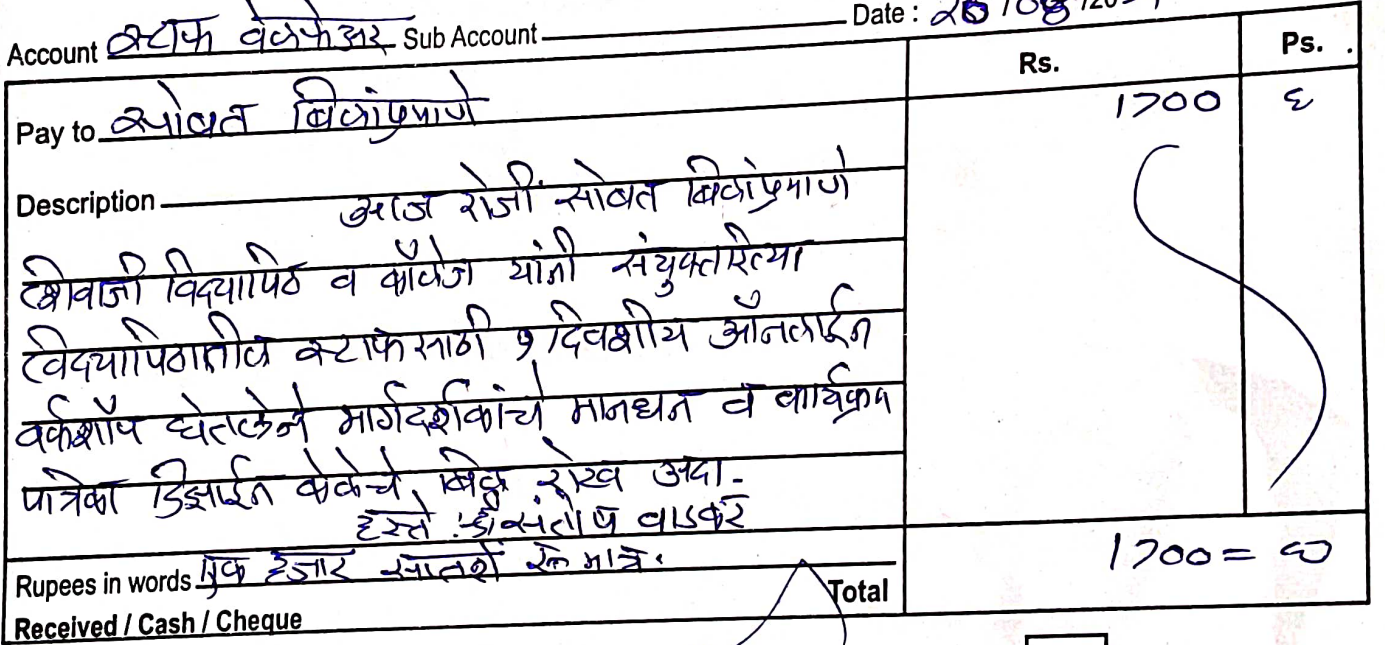 Account स्टाफ वेलफेअर Sub Account Date : /08/20
Rs. Ps.
Pay to सोबत बिलांप्रमाणे 1700
Description आज रोजी सोबत बिलांप्रमाणे
शिवाजी विद्यापिठ व कॉलेज यांनी संयुक्तरित्या
विद्यापिठातील स्टाफसाठी १ दिवशीय ऑनलाईन
वर्कशॉप घेतलेने मार्गदर्शकांचे मानधन व कार्यक्रम
पत्रिका डिझाईन केलेचे बिल रोख अदा-
हस्ते :- श्री संतोष वाडकर
Rupees in words एक हजार सातशे रु मात्र. Total 1700=00
Received / Cash / Cheque